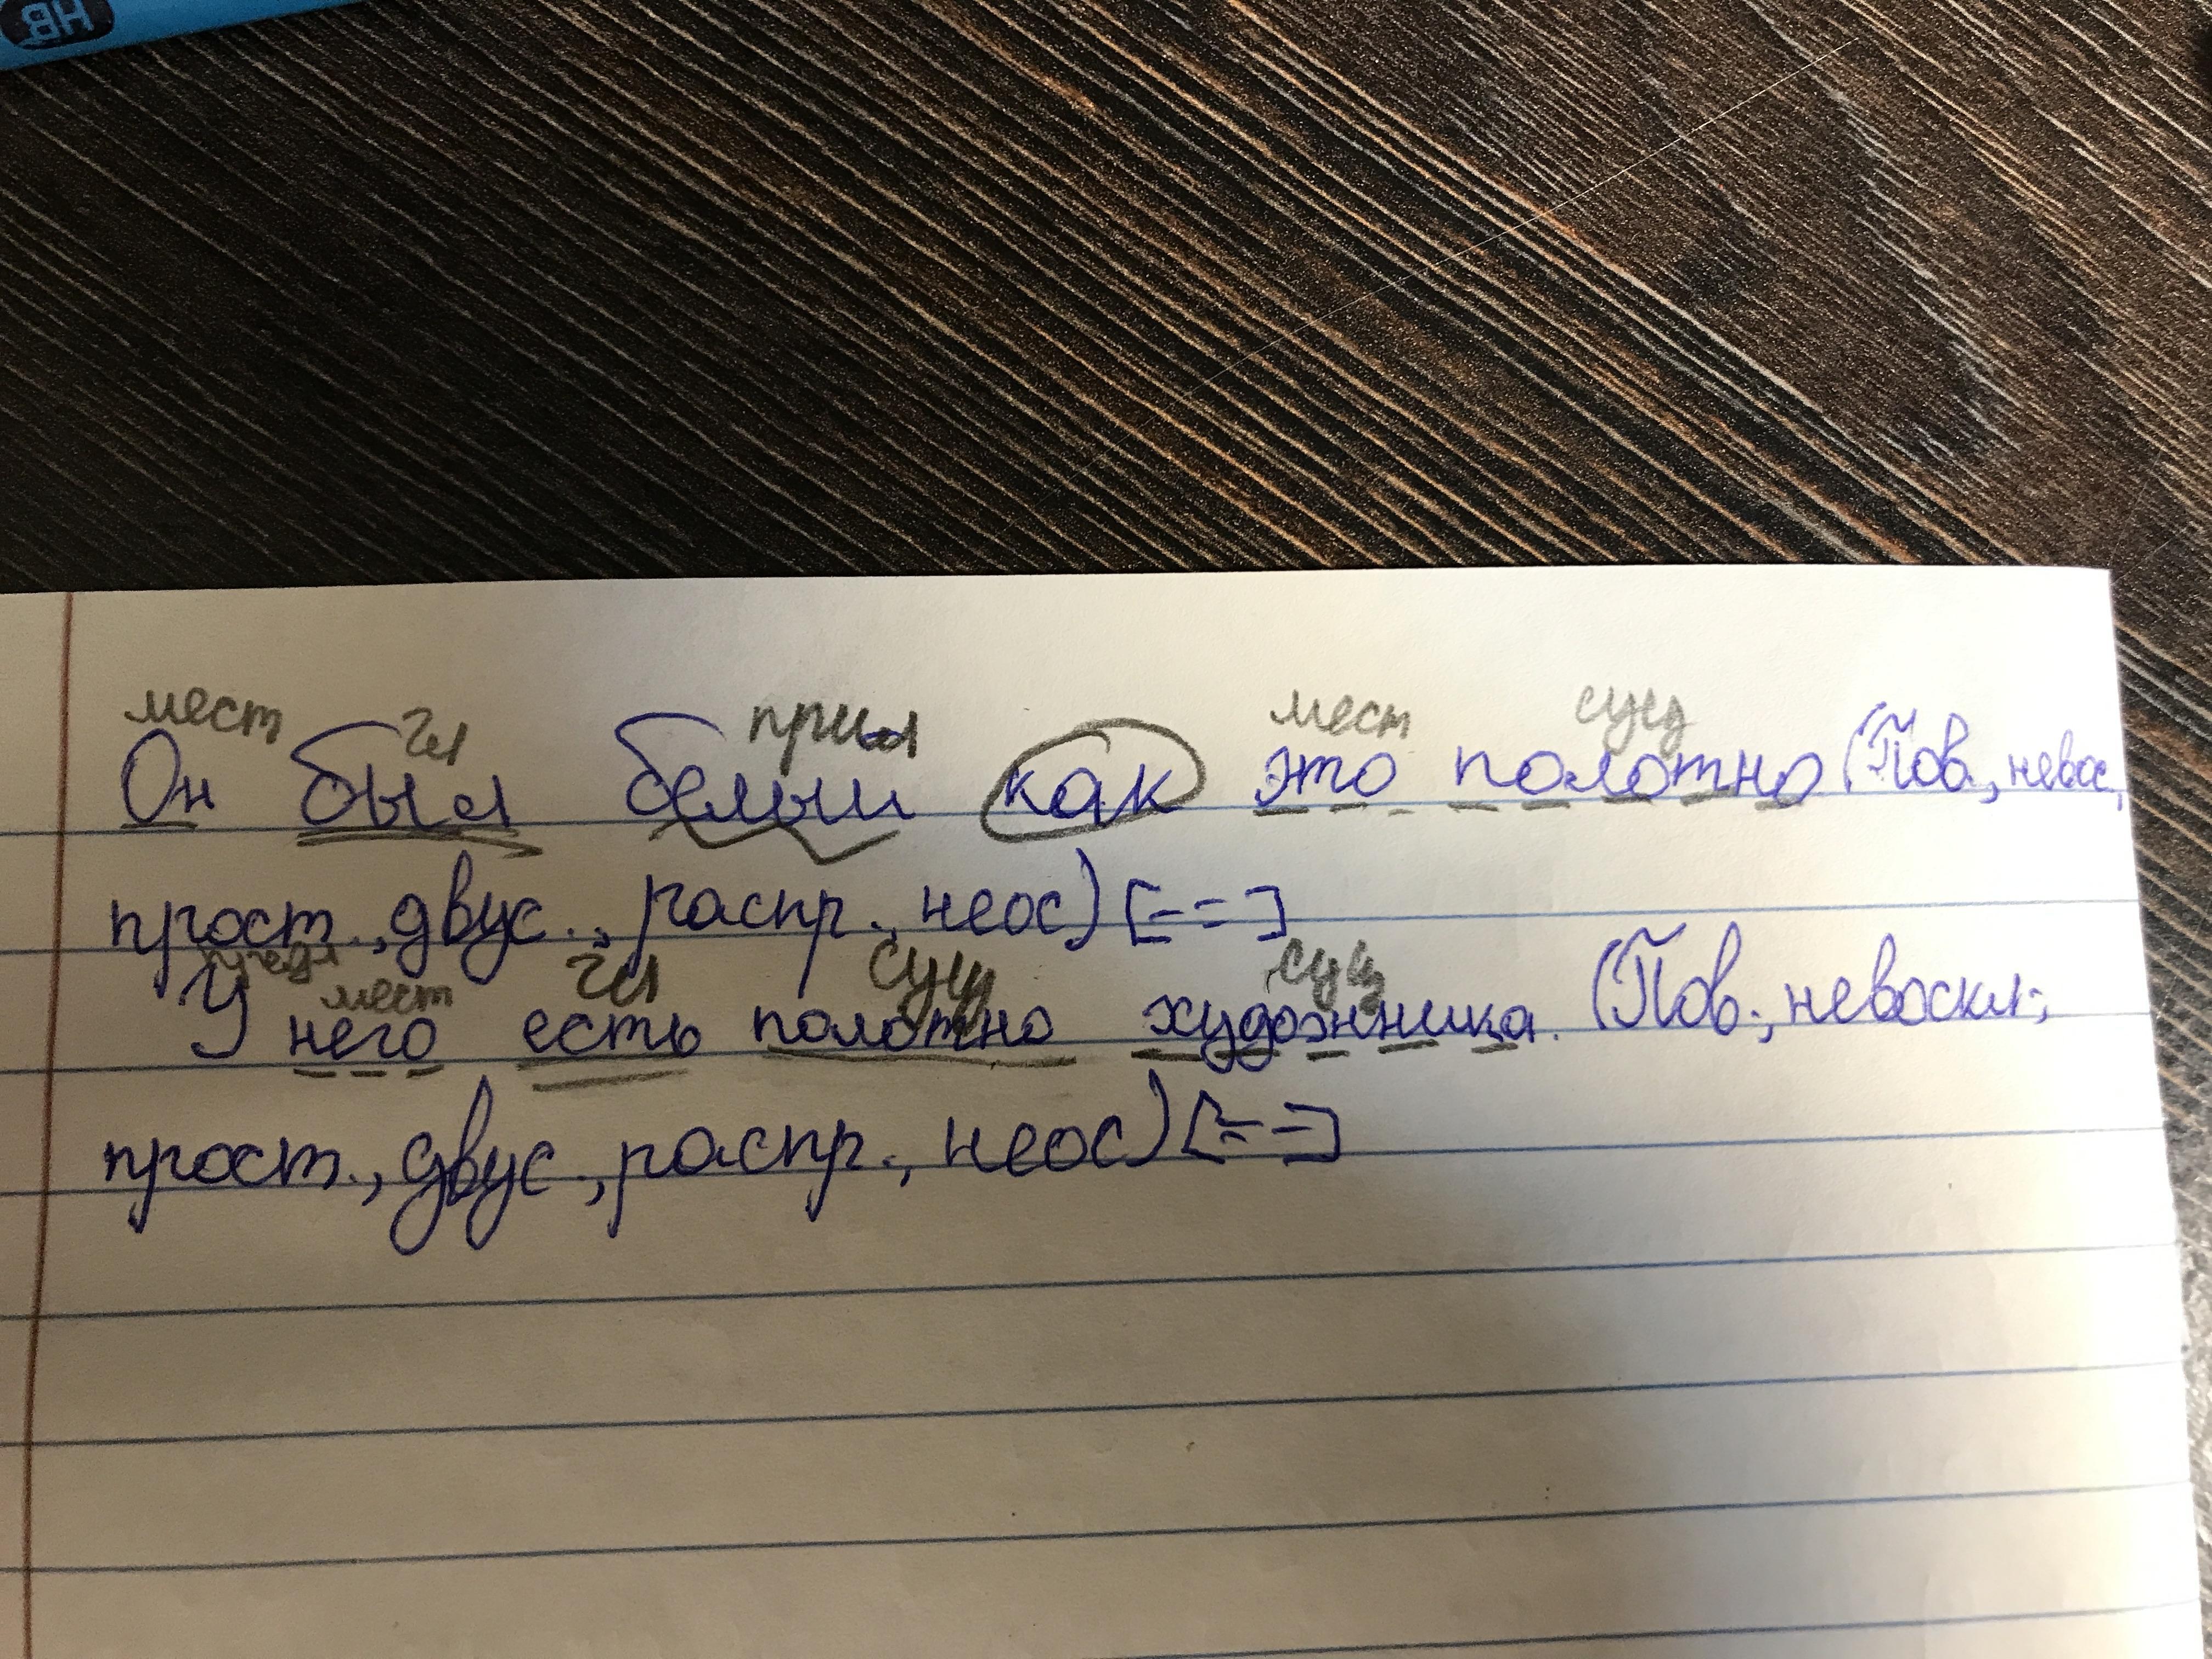 HB
мест гл прил мест сущ
Он был белый как это полотно (Пов., невос,
прост., двус., распр., неос) [- = ]
предл мест гл сущ сущ
У него есть полотно художника. (Пов., невоскл.,
прост., двус., распр., неос) [= =]